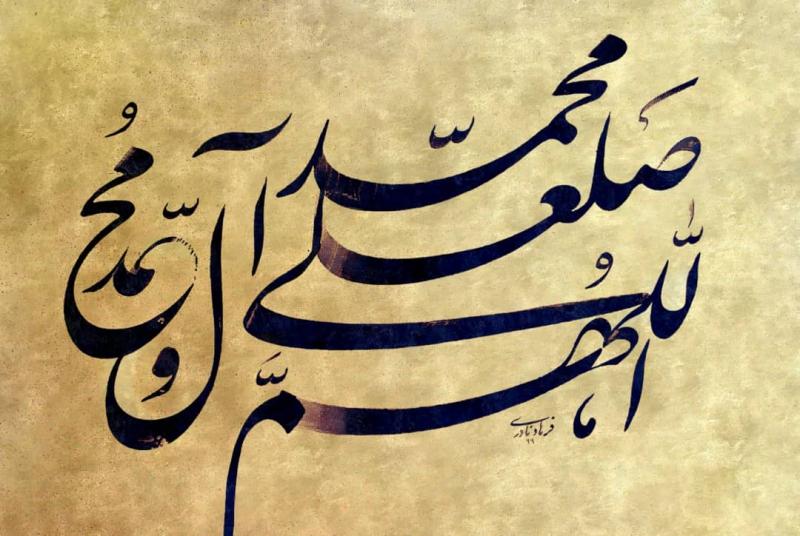 اللّهُمَّ صَل علی محمّد و آل مُحمّد
فرهاد نادری
۹۹